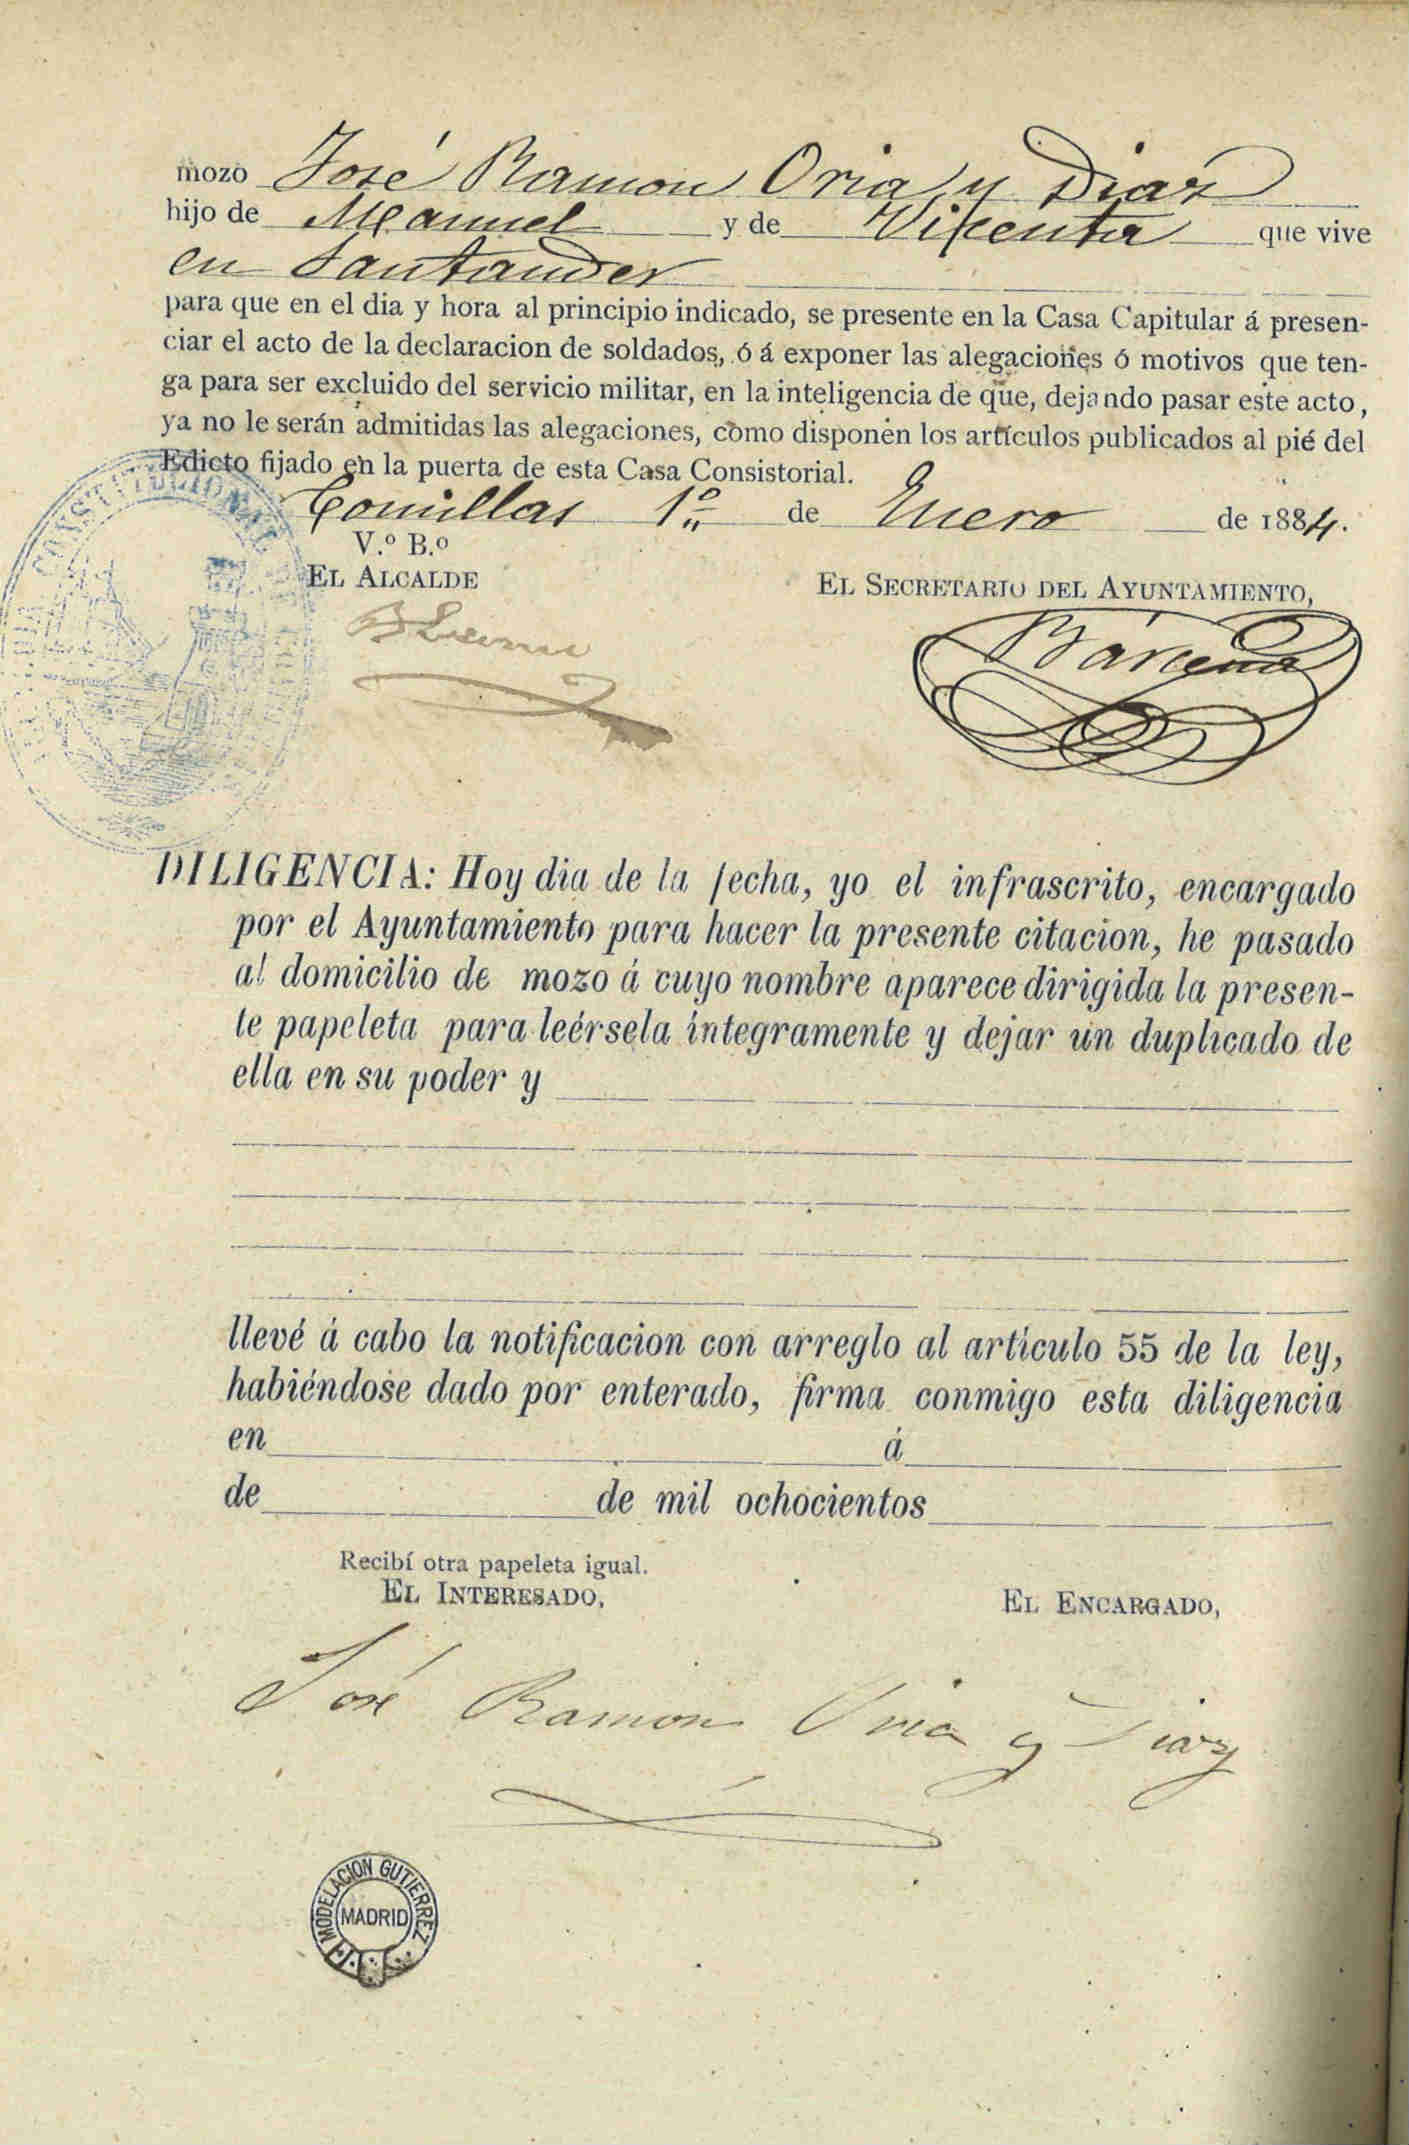 mozo José Ramon Oria y Diaz
hijo de Manuel y de Vicenta que vive
en Santander
para que en el dia y hora al principio indicado, se presente en la Casa Capitular á presen-
ciar el acto de la declaracion de soldados, ó á exponer las alegaciones ó motivos que ten-
ga para ser excluido del servicio militar, en la inteligencia de que, dejando pasar este acto,
ya no le serán admitidas las alegaciones, como disponen los artículos publicados al pié del
Edicto fijado en la puerta de esta Casa Consistorial.
Comillas 1º de Enero de 1884.
V.º B.º
EL ALCALDE
EL SECRETARIO DEL AYUNTAMIENTO,
Bárcena
CONSTITUCIONAL
DILIGENCIA: Hoy dia de la fecha, yo el infrascrito, encargado
por el Ayuntamiento para hacer la presente citacion, he pasado
al domicilio de mozo á cuyo nombre aparece dirigida la presen-
te papeleta para leérsela íntegramente y dejar un duplicado de
ella en su poder y
llevé á cabo la notificacion con arreglo al artículo 55 de la ley,
habiéndose dado por enterado, firma conmigo esta diligencia
en á
de de mil ochocientos
Recibí otra papeleta igual.
EL INTERESADO,
EL ENCARGADO,
José Ramon Oria y Diaz
MODELACION GUTIERREZ
MADRID